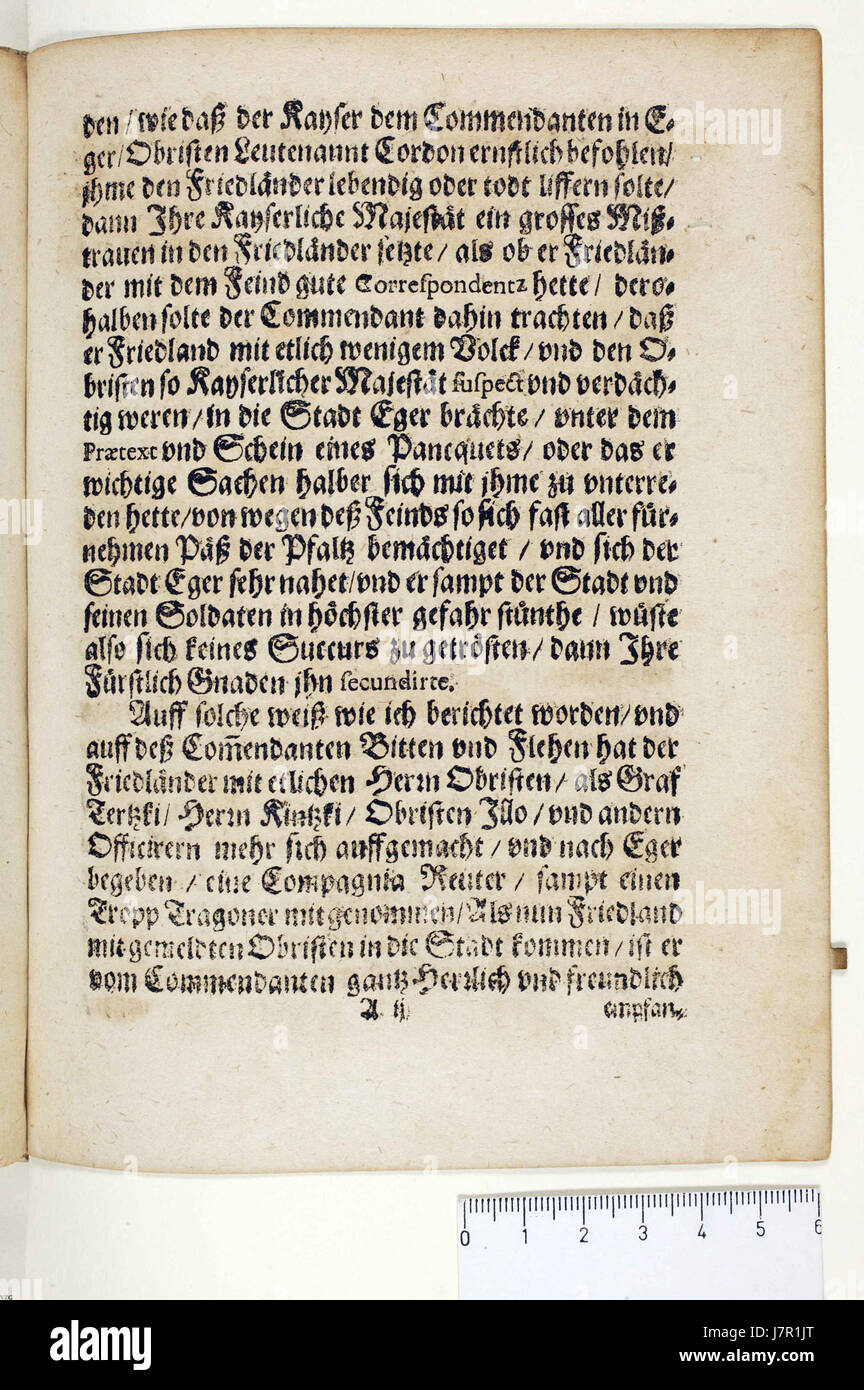 den / wie daß der Kayser dem Commendanten in E-
ger / Obristen Leutenannt Cordon ernstlich befohlen /
jhme den Friedländer lebendig oder todt liffern solte /
dann Ihre Kayserliche Majestät ein grosses Miß-
trauen in den Friedländer setzte / als ob er Friedlän-
der mit dem Feind gute Correspondentz hette / dero-
halben solte der Commendant dahin trachten / daß
er Friedland mit etlich wenigem Volck / vnd den O-
bristen so Kayserlicher Majestät suspect vnd verdäch-
tig weren / in die Stadt Eger brächte / vnter dem
Prætext vnd Schein eines Pancquets / oder das er
wichtige Sachen halber sich mit jhme zu vnterre-
den hette / von wegen deß Feinds so sich fast aller für-
nehmen Päß der Pfaltz bemächtiget / vnd sich der
Stadt Eger sehr nahet / vnd er sampt der Stadt vnd
seinen Soldaten in höchster gefahr stünthe / wüste
also sich keines Succurs zu getrösten / dann Ihre
Fürstlich Gnaden jhn secundirte.
Auff solche weiß wie ich berichtet worden / vnd
auff deß Com̄endanten Bitten vnd Flehen hat der
Friedländer mit etlichen Herrn Obristen / als Graf
Tertzki / Herrn Kintzki / Obristen Illo / vnd andern
Officirern mehr sich auffgemacht / vnd nach Eger
begeben / eine Compagnia Reuter / sampt einen
Tropp Tragoner mitgenommen / Als nun Friedland
mit gemeldten Obristen in die Stadt kommen / ist er
vom Commendanten gantz Herrlich vnd freundlich
A ij empfan-
0 1 2 3 4 5 6
alamy
alamy
Image ID: J7R1JT
www.alamy.com